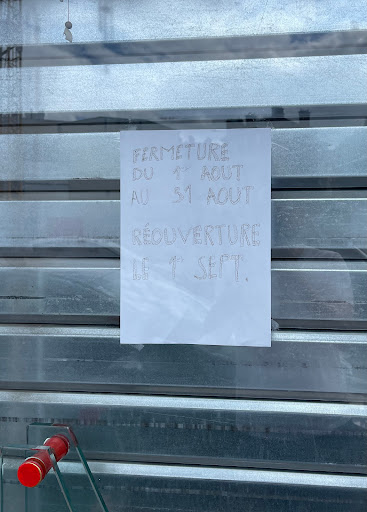 FERMETURE
DU 1er AOUT
AU 31 AOUT
RÉOUVERTURE
LE 1er SEPT.